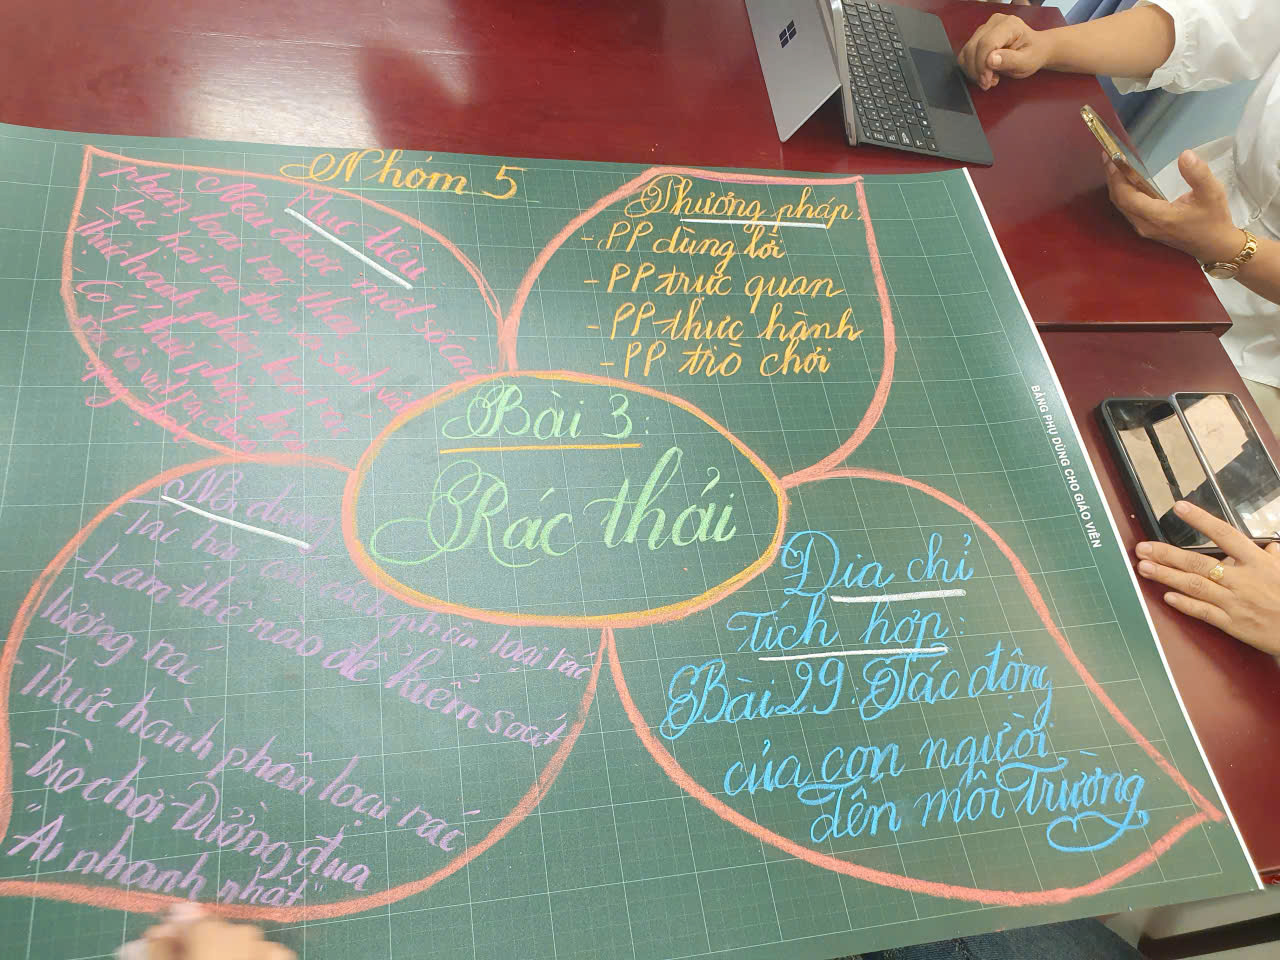 Nhóm 5
Mục tiêu
Nêu được một số cách
phân loại rác thải
tác hại
Thực hành phân loại rác
Có ý thức phân loại
rác và vứt rác đúng
quy định
Phương pháp:
- PP dùng lời
- PP trực quan
- PP thực hành
- PP trò chơi
Bài 3:
Rác thải
Nội dung
- Tác hại các cách phân loại rác
- Làm thế nào để kiểm soát
lượng rác
- Thực hành phân loại rác
- Trò chơi Đường đua
"Ai nhanh nhất"
Địa chỉ
Tích hợp:
Bài 29: Tác động
của con người
lên môi Trường
BẢNG PHỤ DÙNG CHO GIÁO VIÊN